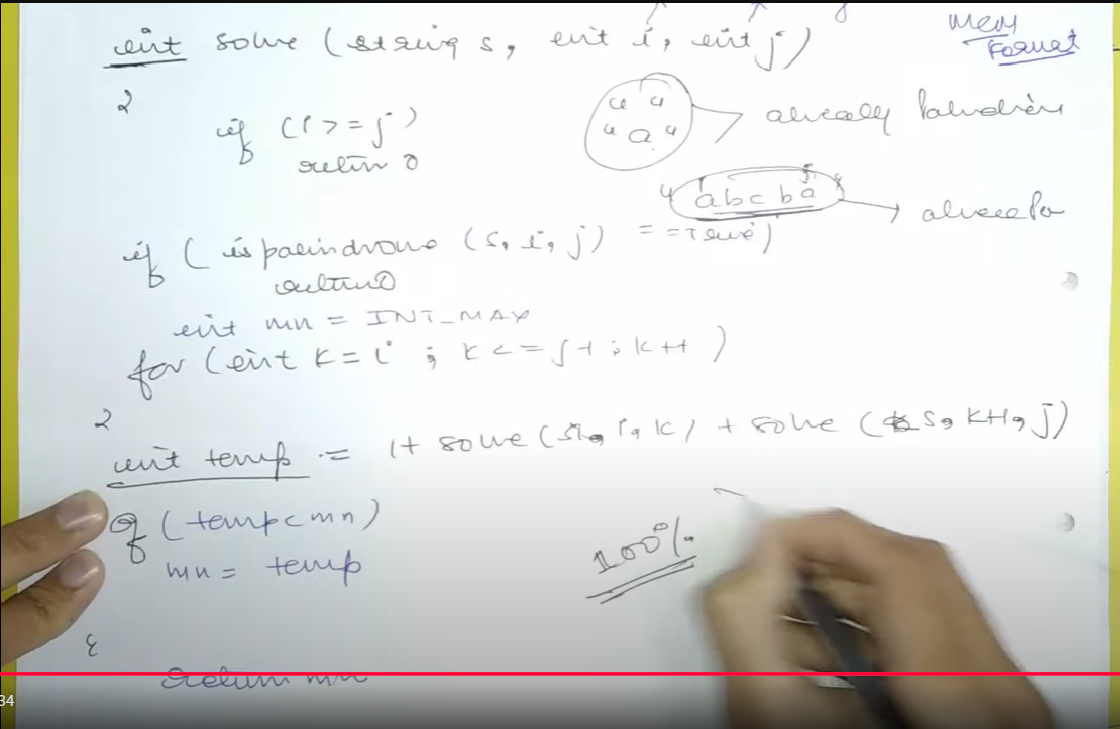 int solve (string s, int i, int j)
MCM
Format
{
if (i >= j)
return 0
" "
" a "
already Palindrome
" abcba
j
if ( is palindrome (s, i, j) == true)
return 0
int mn = INT_MAX
for (int k = i ; k <= j-1 ; k++ )
{
int temp = 1+ solve (s, i, k) + solve (s, k+1, j)
if (temp < mn)
mn = temp
100%
}
return mn
34